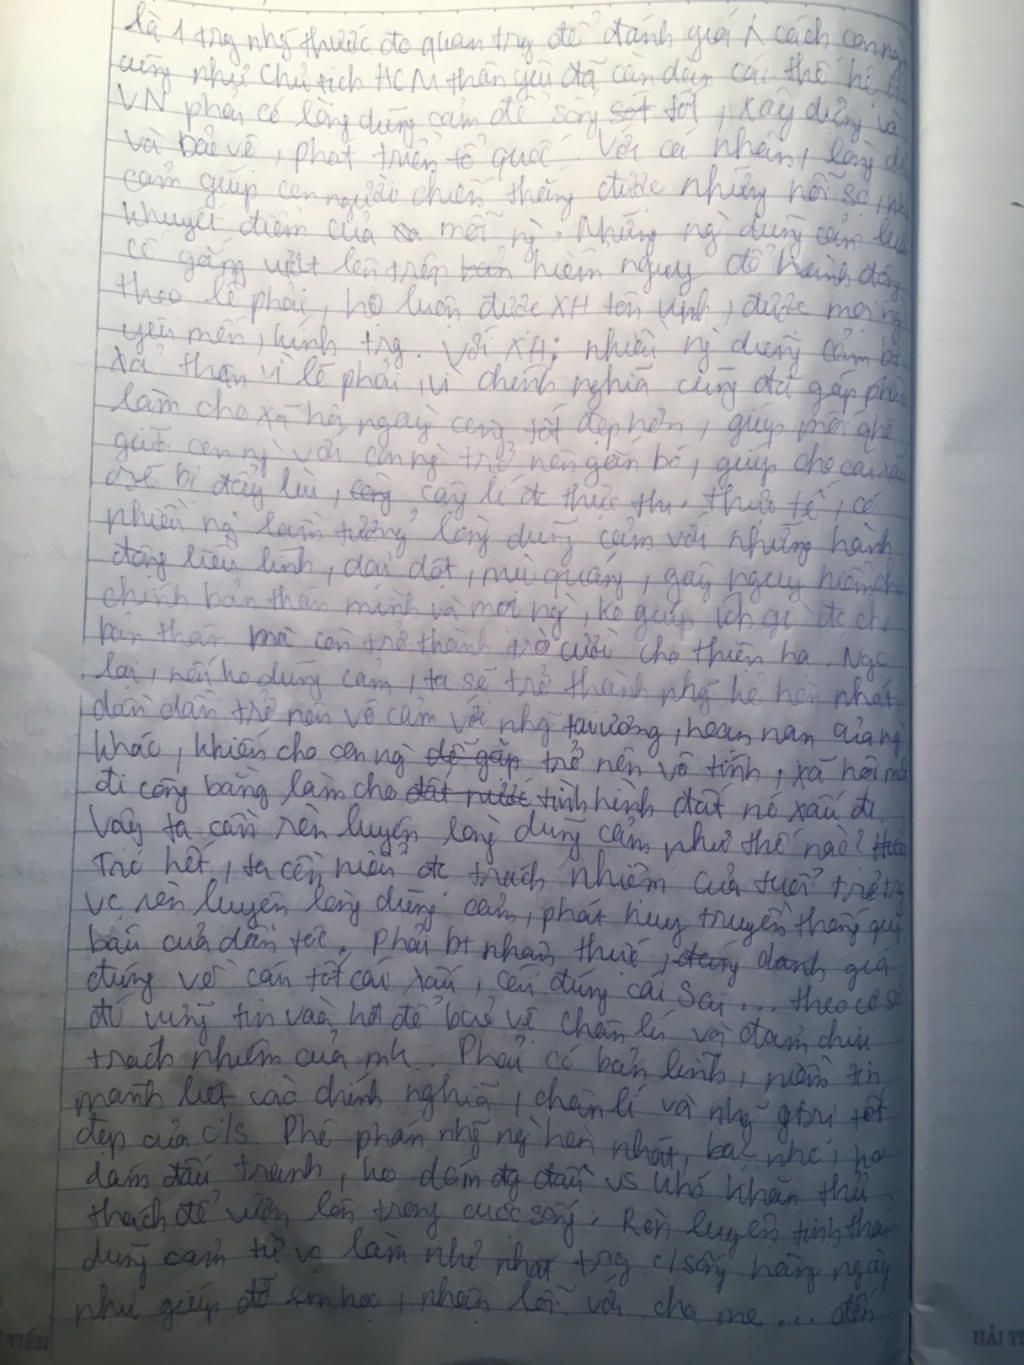 là 1 trg nhg thước đo quan trg để đánh giá cách con ng
cũng như chủ tịch HCM thân yêu đã căn dặn các thế hệ
VN phải có lòng dũng cảm để sống tốt, xây dựng và
và bảo vệ, phát triển tổ quốc. Với cá nhân, lòng
cảm giúp con người chiến thắng được những nỗi sợ,
khuyết điểm của mỗi ng. Những ng dũng cảm luôn
cố gắng vượt lên trên hiểm nguy để hành động
theo lẽ phải, họ luôn được XH tôn vinh, được mọi ng
yêu mến, kính trg. Với XH: nhiều ng dũng cảm bt
xả thân vì lẽ phải, vì chính nghĩa cũng đã góp phần
làm cho xã hội ngày càng tốt đẹp hơn, giúp mối qhệ
giữa con ng với con ng trở nên gắn bó, giúp cho cái xấu
bị đẩy lùi, công lí đc thực thi. Thực tế, có
nhiều ng lầm tưởng lòng dũng cảm với những hành
động liều lĩnh, dại dột, mù quáng, gây nguy hiểm cho
chính bản thân mình và mọi ng, ko giúp ích gì đc cho
bản thân mà còn trở thành trò cười cho thiên hạ. Ngc
lại, nếu ko dũng cảm, ta sẽ trở thành nhg kẻ hèn nhát,
dần dần trở nên vô cảm với nhg tai ương, hoạn nạn của ng
khác, khiến cho con ng trở nên vô tình, xã hội mất
đi công bằng làm cho tình hình đất nc xấu đi.
Vậy ta cần rèn luyện lòng dũng cảm như thế nào?
Trc hết, ta cần hiểu đc trách nhiệm của tuổi trẻ trg
vc rèn luyện lòng dũng cảm, phát huy truyền thống quý
báu của dân tộc. Phải bt nhận thức, đánh giá
đúng về cái tốt cái xấu, cái đúng cái sai... theo cơ sở
đó vững tin vào nó để bảo vệ chân lí và dám chịu
trách nhiệm của mk. Phải có bản lĩnh, niềm tin
mãnh liệt vào chính nghĩa, chân lí và nhg gtrị tốt
đẹp của c/s. Phê phán nhg ng hèn nhát, bạc nhược, ko
dám đấu tranh, ko dám đg đầu vs khó khăn thử
thách để vươn lên trong cuộc sống. Rèn luyện tinh thần
dũng cảm từ vc làm nhỏ nhất trg c/sống hàng ngày
như giúp đỡ em học, nhận lỗi với cha mẹ... đến
TIẾN
HẢI TI